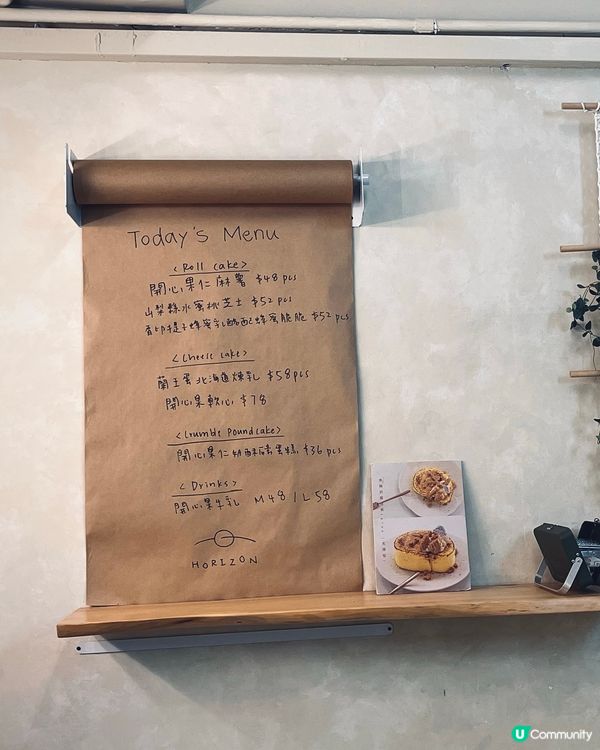 Today's Menu
<Roll Cake>
開心果仁麻薯 $48 pcs
山梨縣水蜜桃芝士 $52 pcs
青印提子蜂蜜乳酪配蜂蜜脆脆 $52 pcs
<Cheese Cake>
蘭王蛋北海道煉乳 $58 pcs
開心果軟心 $78
<Crumble Poundcake>
開心果仁奶酥磅蛋糕 $36 pcs
<Drinks>
開心果牛乳 M 48 / L 58
HORIZON
U Community